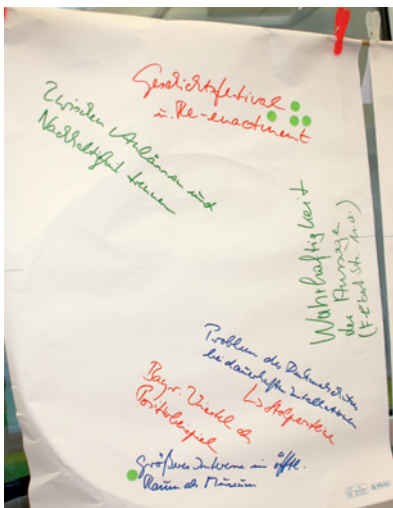 Geschichtsfestival
u. Re-enactment
Zwischen Anlässen und
Nachhaltigkeit trennen
Wahrhaftigkeit
der Aussage
(F-Ebert Str. u.a.)
Problem des Denkmalschutzes
bei dauerhaften Installationen
↳ Stolpersteine
Bayr. Viertel als
Positivbeispiel
größeres Interesse im öfftl.
Raum als Museum